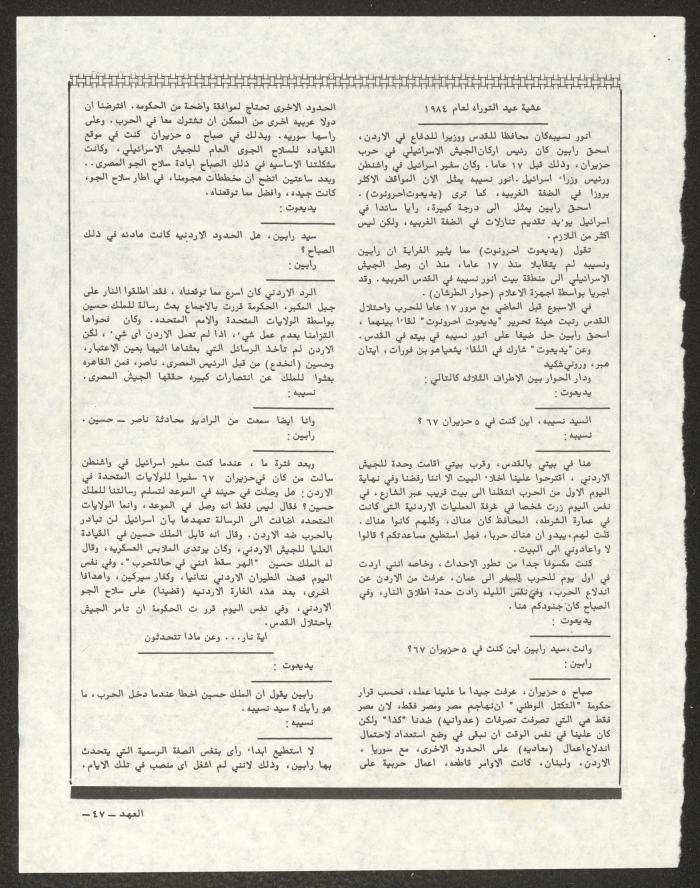 عشية عيد التوراه لعام ١٩٨٤
انور نسيبه كان محافظا للقدس ووزيرا للدفاع في الاردن،
اسحق رابين كان رئيس اركان الجيش الاسرائيلي في حرب
حزيران، وذلك قبل ١٧ عاما. وكان سفير اسرائيل في واشنطن
ورئيس وزراء اسرائيل. انور نسيبه يمثل الان المواقف الاكثر
بروزا في الضفة الغربيه، كما ترى (يديعوت احرونوت).
اسحق رابين يمثل الى درجة كبيرة، رايا سائدا في
اسرائيل يؤيد تقديم تنازلات في الضفة الغربيه، ولكن ليس
اكثر من اللازم.
تقول (يديعوت احرونوت) مما يثير الغرابة ان رابين
ونسيبه لم يتقابلا منذ ١٧ عاما، منذ ان وصل الجيش
الاسرائيلي الى منطقة بيت انور نسيبه في القدس العربيه. وقد
اجريا بواسطة اجهزة الاعلام (حوار الطرشان).
في الاسبوع قبل الماضي مع مرور ١٧ عاما للحرب واحتلال
القدس رتبت هيئة تحرير "يديعوت احرونوت" لقاءا بينهما،
اسحق رابين حل ضيفا على انور نسيبه في بيته في القدس.
وعن "يديعوت" شارك في اللقاء يشعياهو بن فورات، ايتان
هبر، وروني شكيد
ودار الحوار بين الاطراف الثلاثه كالتالي:
يديعوت:
السيد نسيبه، اين كنت في ٥ حزيران ٦٧ ؟
نسيبه:
هنا في بيتي بالقدس، وقرب بيتي اقامت وحدة للجيش
الاردني ، اقترحوا علينا اخلاء البيت الا اننا رفضنا وفي نهاية
اليوم الاول من الحرب انتقلنا الى بيت قريب عبر الشارع، في
نفس اليوم زرت شخصا في غرفة العمليات الاردنية التى كانت
في عمارة الشرطه، المحافظ كان هناك، وكلهم كانوا هناك.
قلت لهم، يبدو ان هناك حربا، فهل استطيع مساعدتكم؟ قالوا
لا واعادوني الى البيت.
كنت مكسوفا جدا من تطور الاحداث، وخاصه انني اردت
في اول يوم للحرب السفر الى عمان، عرفت من الاردن عن
اندلاع الحرب، وفي نفس الليله زادت حدة اطلاق النار، وفي
الصباح كان جنودكم هنا.
يديعوت :
وانت، سيد رابين اين كنت في ٥ حزيران ٦٧؟
رابين:
صباح ٥ حزيران، عرفت جيدا ما علينا عمله، فحسب قرار
حكومة "التكتل الوطني" ان نهاجم مصر ومصر فقط، لان مصر
فقط هي التي تصرفت تصرفات (عدوانيه) ضدنا "كذا" ولكن
كان علينا في نفس الوقت ان نبقى في وضع استعداد لاحتمال
اندلاع اعمال (معاديه) على الحدود الاخرى، مع سوريا ،
الاردن، ولبنان، كانت الاوامر قاطعه، اعمال حربية على
الحدود الاخرى تحتاج لموافقة واضحة من الحكومه. افترضنا ان
دولا عربيه اخرى من الممكن ان تشترك معا في الحرب. وعلى
رأسها سوريه. وبذلك في صباح ٥ حزيران كنت في موقع
القياده للسلاح الجوى العام للجيش الاسرائيلي، وكانت
مشكلتنا الاساسيه في ذلك الصباح ابادة سلاح الجو المصرى..
وبعد ساعتين اتضح ان مخططات هجومنا، في اطار سلاح الجو،
كانت جيده، وافضل مما توقعناه.
يديعوت :
سيد رابين، هل الحدود الاردنيه كانت هادئه في ذلك
الصباح؟
رابين:
الرد الاردني كان اسرع مما توقعناه ، فقد اطلقوا النار على
جبل المكبر، الحكومة قررت بالاجماع بعث رسالة للملك حسين
بواسطة الولايات المتحدة والامم المتحده. وكان فحواها
التزامنا بعدم عمل شيء، اذا لم تعمل الاردن اى شيء ، لكن
الاردن لم تأخذ الرسائل التي بعثناها اليها بعين الاعتبار،
وحسين (انخدع) من قبل الرئيس المصرى، ناصر، فمن القاهره
بعثوا للملك عن انتصارات كبيره حققها الجيش المصرى.
نسيبه:
وانا ايضا سمعت من الراديو محادثة ناصر ــ حسين.
رابين:
وبعد فترة ما ، عندما كنت سفير اسرائيل في واشنطن
سالت من كان في حزيران ٦٧ سفيرا للولايات المتحدة في
الاردن: هل وصلت في حينه في الموعد لتسلم رسالتنا للملك
حسين؟ فقال ليس فقط انه وصل في الموعد، وانما الولايات
المتحده اضافت الى الرسالة تعهدها بأن اسرائيل لن تبادر
بالحرب ضد الاردن. وقال انه قابل الملك حسين في القيادة
العليا للجيش الاردني، وكان يرتدى الملابس العسكريه، وقال
له الملك حسين "الهر سقط انني في حالة حرب"، وفي نفس
اليوم قصف الطيران الاردني نتانيا، وكفار سيركين، واهدافا
اخرى، بعد هذه الغارة الاردنيه (قضينا) على سلاح الجو
الاردني، وفي نفس اليوم قررت الحكومة ان تأمر الجيش
باحتلال القدس.
اية نار... وعن ماذا تتحدثون
يديعوت :
رابين يقول ان الملك حسين اخطأ عندما دخل الحرب، ما
هو رأيك؟ سيد نسيبه.
نسيبه:
لا استطيع ابداء رأى بنفس الصفة الرسمية التي يتحدث
بها رابين، وذلك لانني لم اشغل اى منصب في تلك الايام.
العهد ــ ٤٧ ــ